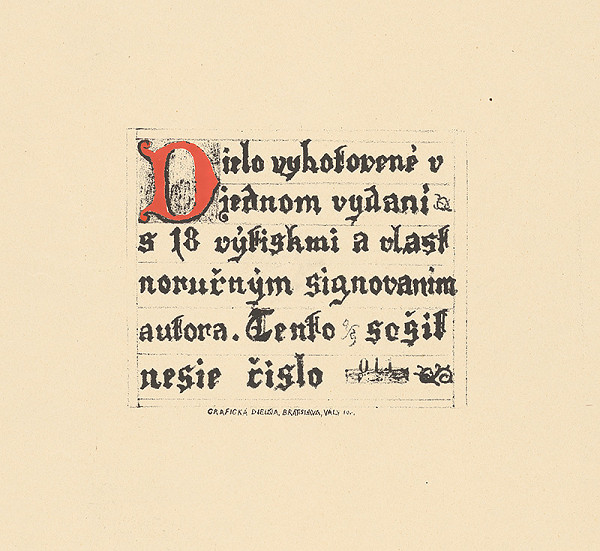 Dielo vyhotovené v
jednom vydaní
s 18 výtiskmi a vlast
noručným signovaním
autora. Tento sošit
nesie číslo 011
GRAFICKÁ DIELŇA, BRATISLAVA,